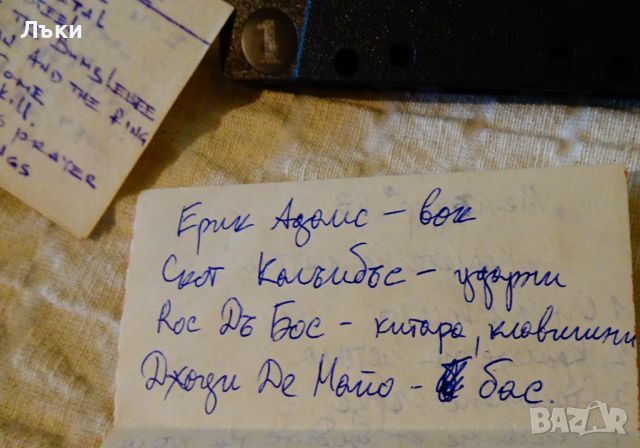 Лъки
METAL
STEEL
THE
BUMBLEBEE
AND THE RING
COME
KILL.
PRAYER
Ерик Адамс – вок
Скот Калъмбъс – ударни
Rос Дъ Бос – китара, клавишни
Джоуи Де Майо – бас.
1
BAZAR
bg